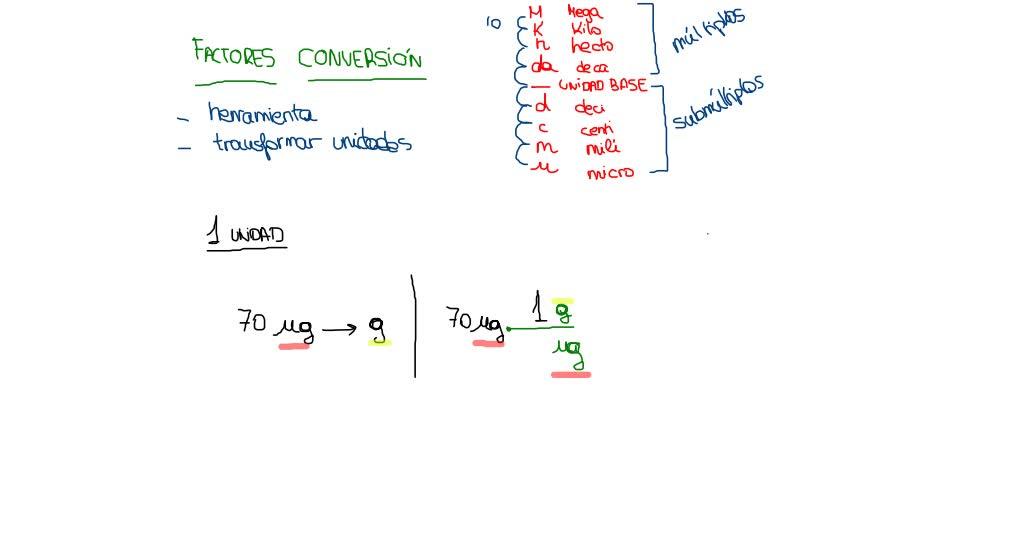 FACTORES CONVERSIÓN
- herramienta
- transformar unidades
10
M Mega
K Kilo
h hecto
da deca
— UNIDAD BASE
d deci
c centi
m mili
μ micro
múltiplos
submúltiplos
1 UNIDAD
70 μg → g
70 μg · 1 g
μg